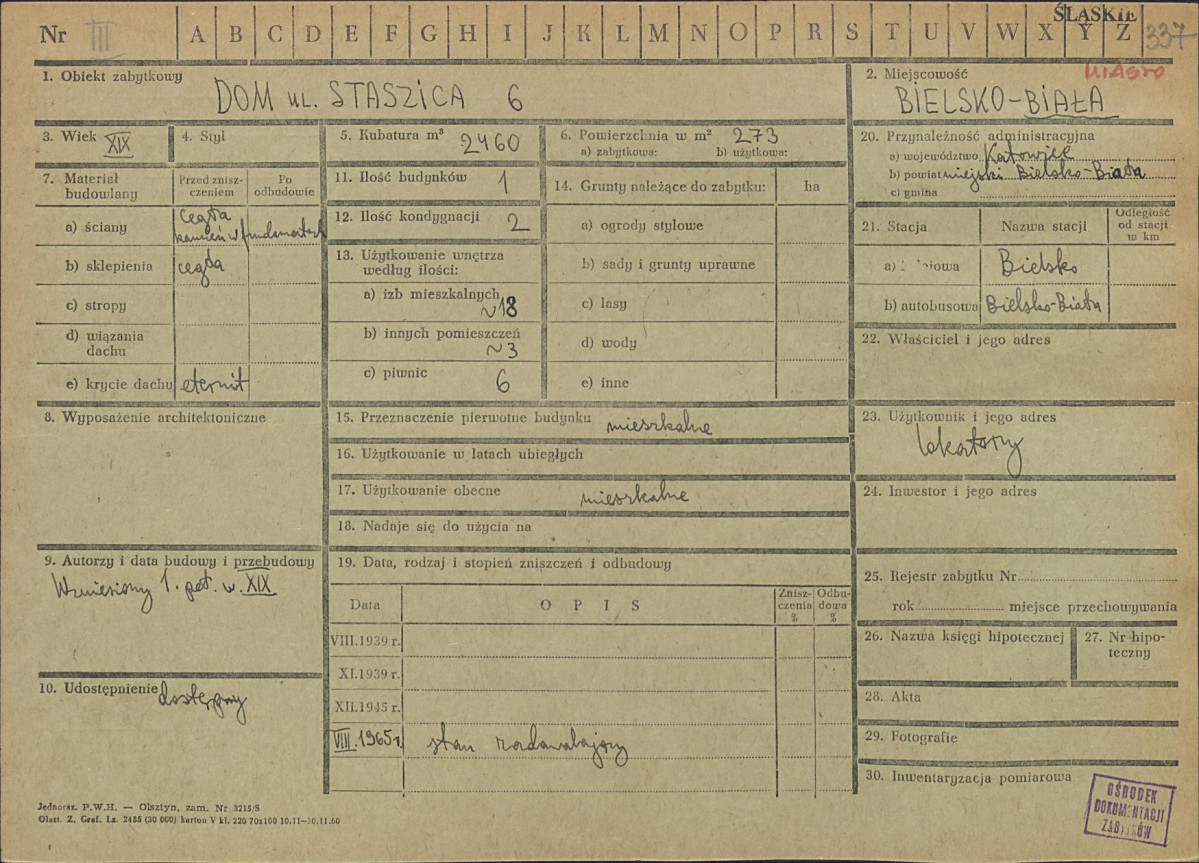 Nr III A B C D E F G H I J K L M N O P R S T U V W X Y Z
ŚLĄSKIE
337
MIASTO
1. Obiekt zabytkowy
DOM UL. STASZICA 6
2. Miejscowość
BIELSKO-BIAŁA
3. Wiek XIX
4. Styl
5. Kubatura m³ 2460
6. Powierzchnia w m² 273
a) zabytkowa: b) użytkowa:
20. Przynależność administracyjna
a) województwo Katowice
b) powiat miejski Bielsko-Biała
c) gmina
7. Materiał budowlany
Przed zniszczeniem
Po odbudowie
a) ściany cegła
kamień w fundamentach
b) sklepienia cegła
c) stropy
d) wiązania dachu
e) krycie dachu eternit
11. Ilość budynków 1
12. Ilość kondygnacji 2
13. Użytkowanie wnętrza
według ilości:
a) izb mieszkalnych
~18
b) innych pomieszczeń
~3
c) piwnic 6
14. Grunty należące do zabytku: ha
a) ogrody stylowe
b) sady i grunty uprawne
c) lasy
d) wody
e) inne
21. Stacja Nazwa stacji Odległość od stacji w km
a) Bielsko
b) autobusowa Bielsko-Biała
22. Właściciel i jego adres
8. Wyposażenie architektoniczne
15. Przeznaczenie pierwotne budynku mieszkalne
16. Użytkowanie w latach ubiegłych
17. Użytkowanie obecne mieszkalne
18. Nadaje się do użycia na
23. Użytkownik i jego adres
lokatorzy
24. Inwestor i jego adres
9. Autorzy i data budowy i przebudowy
Wzniesiony 1. poł. w. XIX
19. Data, rodzaj i stopień zniszczeń i odbudowy
Data OPIS Zniszczenia % Odbudowa %
VIII.1939 r.
XI.1939 r.
XII.1945 r.
VIII.1965 r. stan zadawalający
10. Udostępnienie dostępny
25. Rejestr zabytku Nr
rok miejsce przechowywania
26. Nazwa księgi hipotecznej
27. Nr hipoteczny
28. Akta
29. Fotografie
30. Inwentaryzacja pomiarowa
OŚRODEK
DOKUMENTACJI
ZABYTKÓW
Jednoraz. P.W.H. — Olsztyn, zam. Nr 3215/S
Olszt. Z. Graf. Lz. 2485 (30 000) karton V kl. 220 70x100 10.11—30.11.60